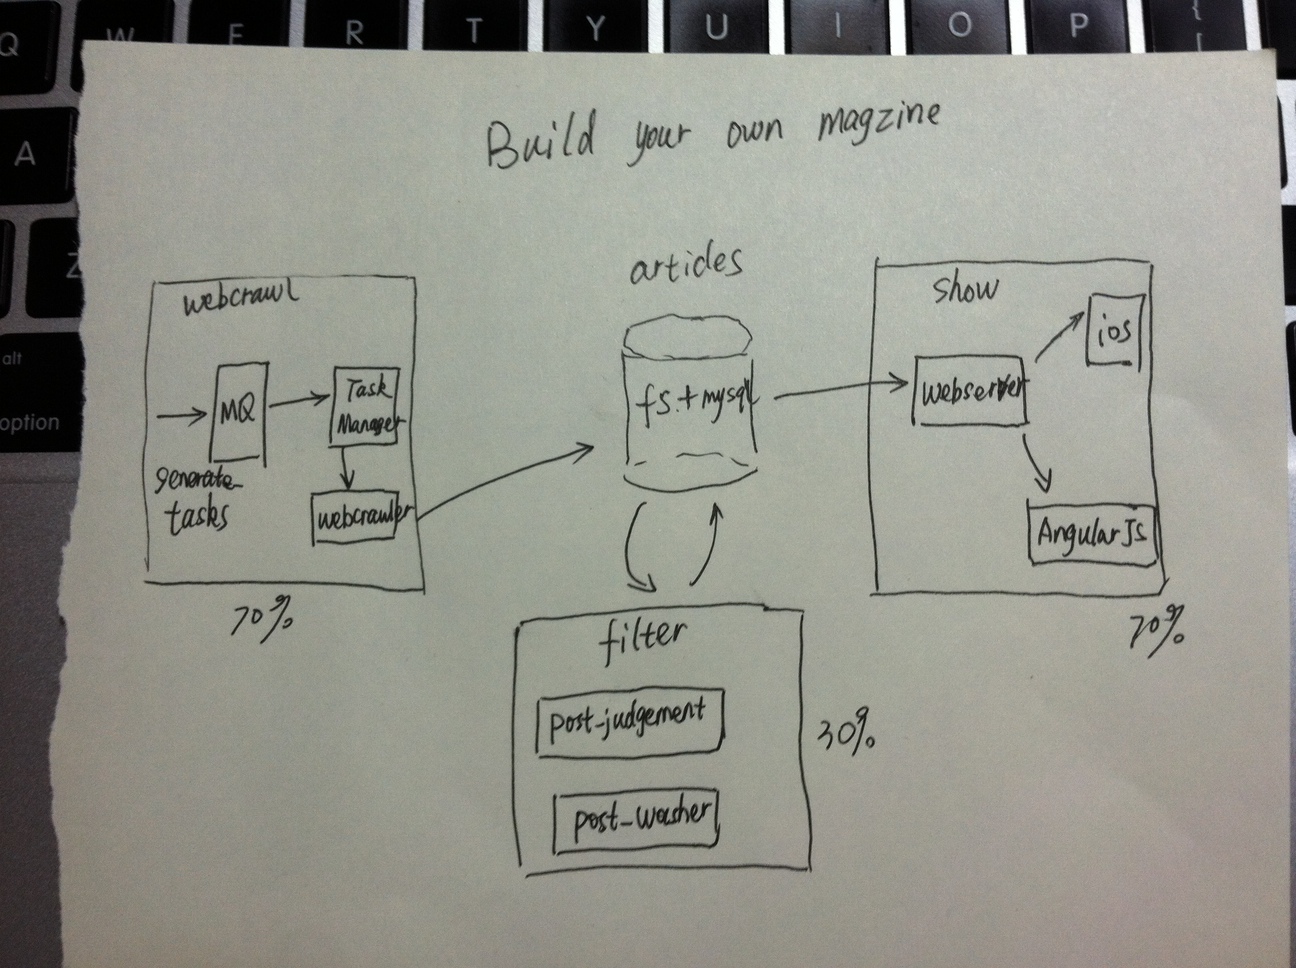 Q W E R T Y U I O P {
[
A
Z
alt
option
Build your own magzine
webcrawl
MQ
Task
Manager
generate
tasks
webcrawler
70%
articles
fs.+mysql
show
ios
webserver
AngularJS
70%
filter
post-judgement
post-washer
30%